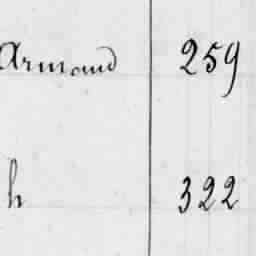 Armand 259
h 322